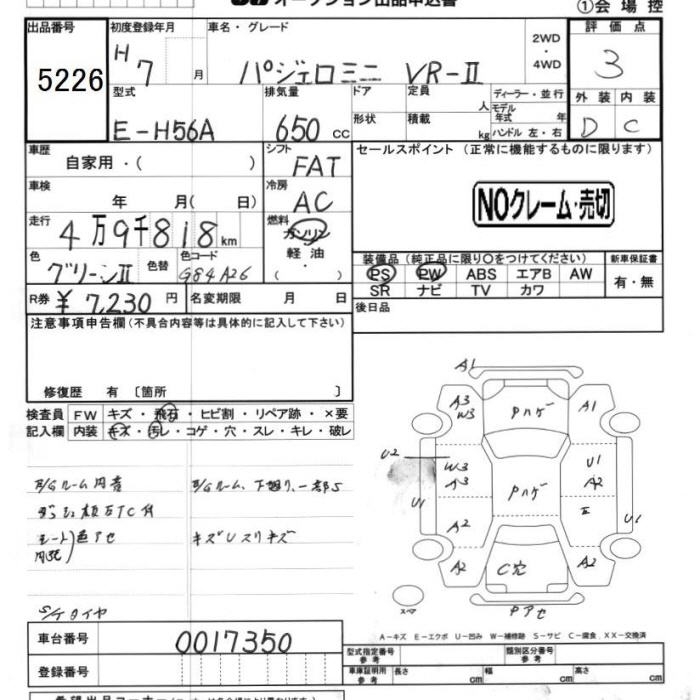 オークション出品申込書
①会場控
出品番号
5226
初度登録年月
H7 月
車名・グレード
パジェロミニ VR-Ⅱ
2WD
・
4WD
評価点
3
型式
E-H56A
排気量
650 cc
ドア
形状
定員 人
積載 kg
ディーラー・並行
モデル
年式 年
ハンドル 左・右
外装 内装
D C
車歴
自家用・( )
シフト
FAT
セールスポイント (正常に機能するものに限ります)
NOクレーム・売切
車検
年 月( 日)
冷房
AC
走行
4万9千818km
燃料
ガソリン
軽油
・
( )
色
グリーンⅡ
色替
色コード
G84A26
装備品 (純正品に限り〇をつけてください)
PS PW ABS エアB AW
SR ナビ TV カワ
新車保証書
有・無
R券 ¥7,230 円
名変期限 月 日
後日品
注意事項申告欄(不具合内容等は具体的に記入して下さい)
修復歴 有 〔箇所 〕
検査員 FW キズ・飛石・ヒビ割・リペア跡・×要
記入欄 内装 キズ・汚レ・コゲ・穴・スレ・キレ・破レ
シート 色アセ
キズUスリキズ
S/Tタイヤ
A1
A3
W3
Pハゲ
A1
U2
W3
A3
U1
A2
Pハゲ
U1
U1
A2
A2
C穴
A2
スペア
Pアセ
A-キズ E-エクボ U-凹み W-補修跡 S-サビ C-腐食 XX-交換済
車台番号
0017350
登録番号
型式指定番号
参考
類別区分番号
参考
車庫証明用
参考
長さ cm
幅 cm
高さ cm